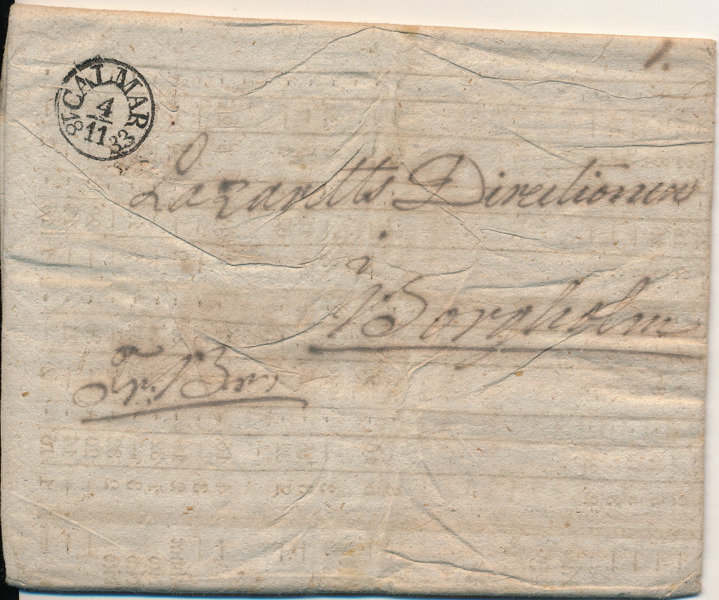 CALMAR
4
11
1833
1.
Lazaretts Directionen
i
Borgholm
Fr: Brs